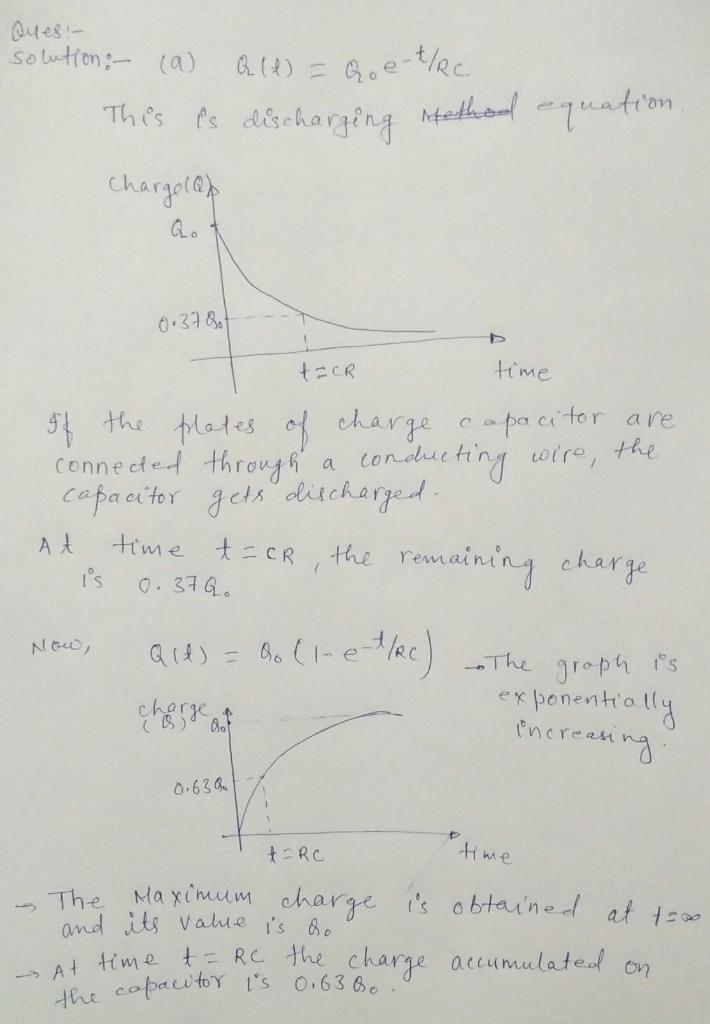 Ques:-
Solution:- (a) Q(t) = Q₀e-t/RC
This is discharging Method equation.
Charge(Q)
Q₀
0.37Q₀
t=CR
time
If the plates of charge capacitor are
connected through a conducting wire, the
capacitor gets discharged.
At time t=CR, the remaining charge
is 0.37Q₀
Now, Q(t) = Q₀(1-e-t/RC) → The graph is
exponentially
increasing.
charge
(Q) Q₀
0.63Q₀
t=RC
time
→ The Maximum charge is obtained at t=∞
and its value is Q₀
→ At time t= RC the charge accumulated on
the capacitor is 0.63Q₀.